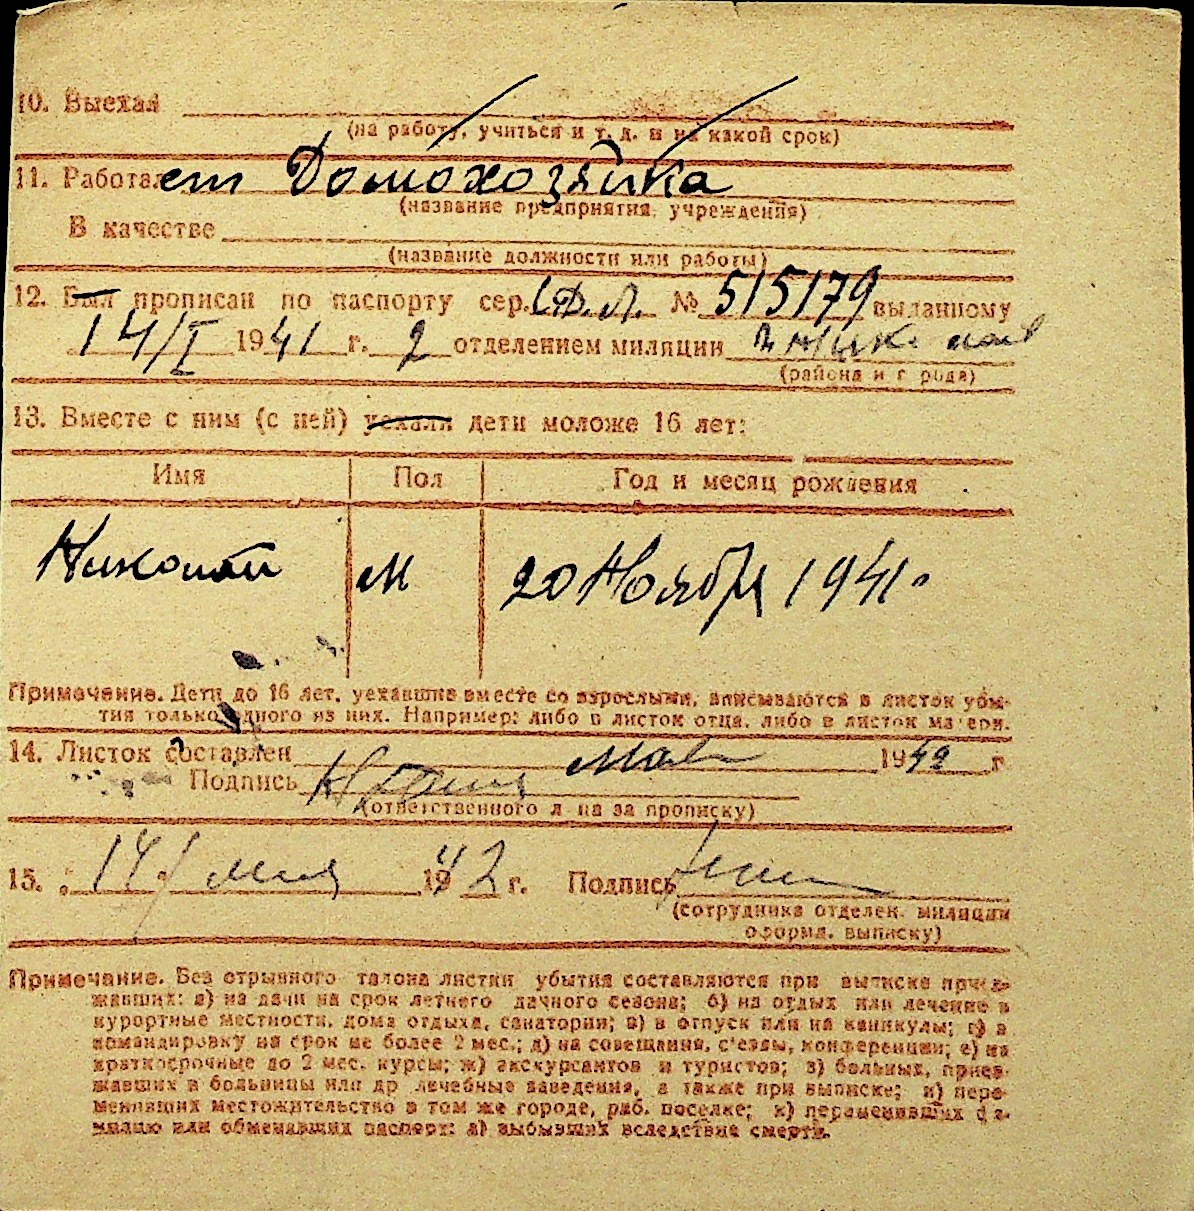 10. Выехал
(на работу, учиться и т. д. и на какой срок)
11. Работает Домохозяйка
(название предприятия, учреждения)
В качестве
(название должности или работы)
12. Был прописан по паспорту сер. № 515179 выданному
14/I 1941 г. 2 отделением милиции
(района и города)
13. Вместе с ним (с ней) уехали дети моложе 16 лет:
Имя Пол Год и месяц рождения
Николай М 20 Ноября 1941.
Примечание. Дети до 16 лет, уехавшие вместе со взрослыми, вписываются в листок убы-
тия только одного из них. Например: либо в листок отца, либо в листок матери.
14. Листок составлен 1942 г
Подпись
(ответственного лица за прописку)
15. 14/ мая 1942 г. Подпись
(сотрудника отделен. милиции
оформл. выписку)
Примечание. Без отрывного талона листки убытия составляются при выписке приез-
жавших: а) на дачи на срок летнего дачного сезона; б) на отдых или лечение в
курортные местности, дома отдыха, санатории; в) в отпуск или на каникулы; г) в
командировку на срок не более 2 мес.; д) на совещания, с'езды, конференции; е) на
краткосрочные до 2 мес. курсы; ж) экскурсантов и туристов; з) больных, приез-
жавших в больницы или др лечебные заведения, а также при выписке; и) пере-
менивших местожительство в том же городе, раб. поселке; к) переменивших фа-
милию или обменявших паспорт: л) выбывших вследствие смерти.